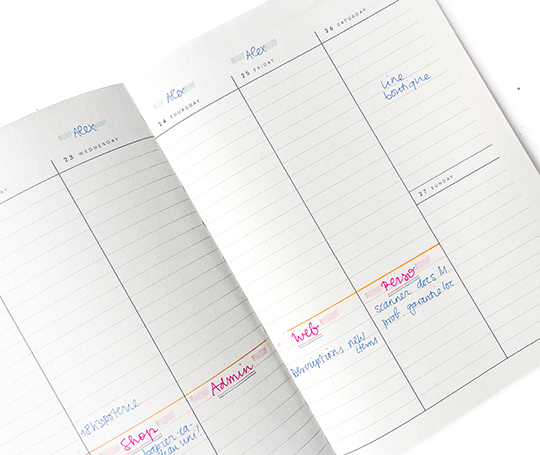 Alex
23 WEDNESDAY
18h30 poterie
Shop
papier ca-
Alex
24 THURSDAY
Admin
Alex
25 FRIDAY
Web
Descriptions new
items
26 SATURDAY
une
boutique
Perso
scanner docs M.
prob. garantie loc
27 SUNDAY